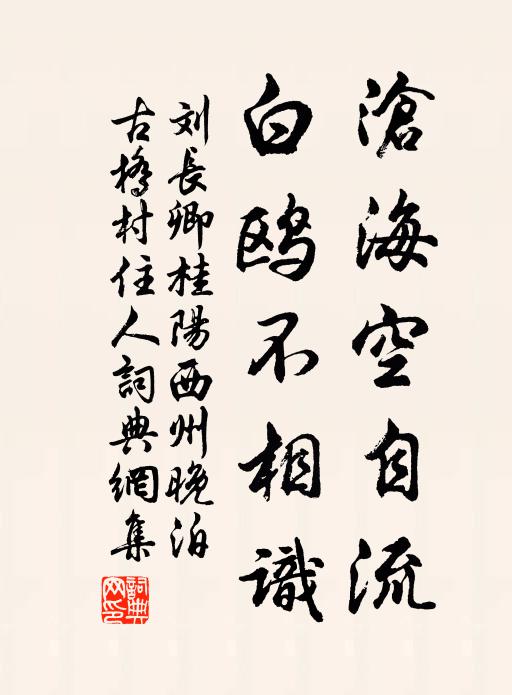 滄海空自流
白鸥不相識
刘長卿桂陽西州晚泊
古橋村住人詞典網集
詞典
网印